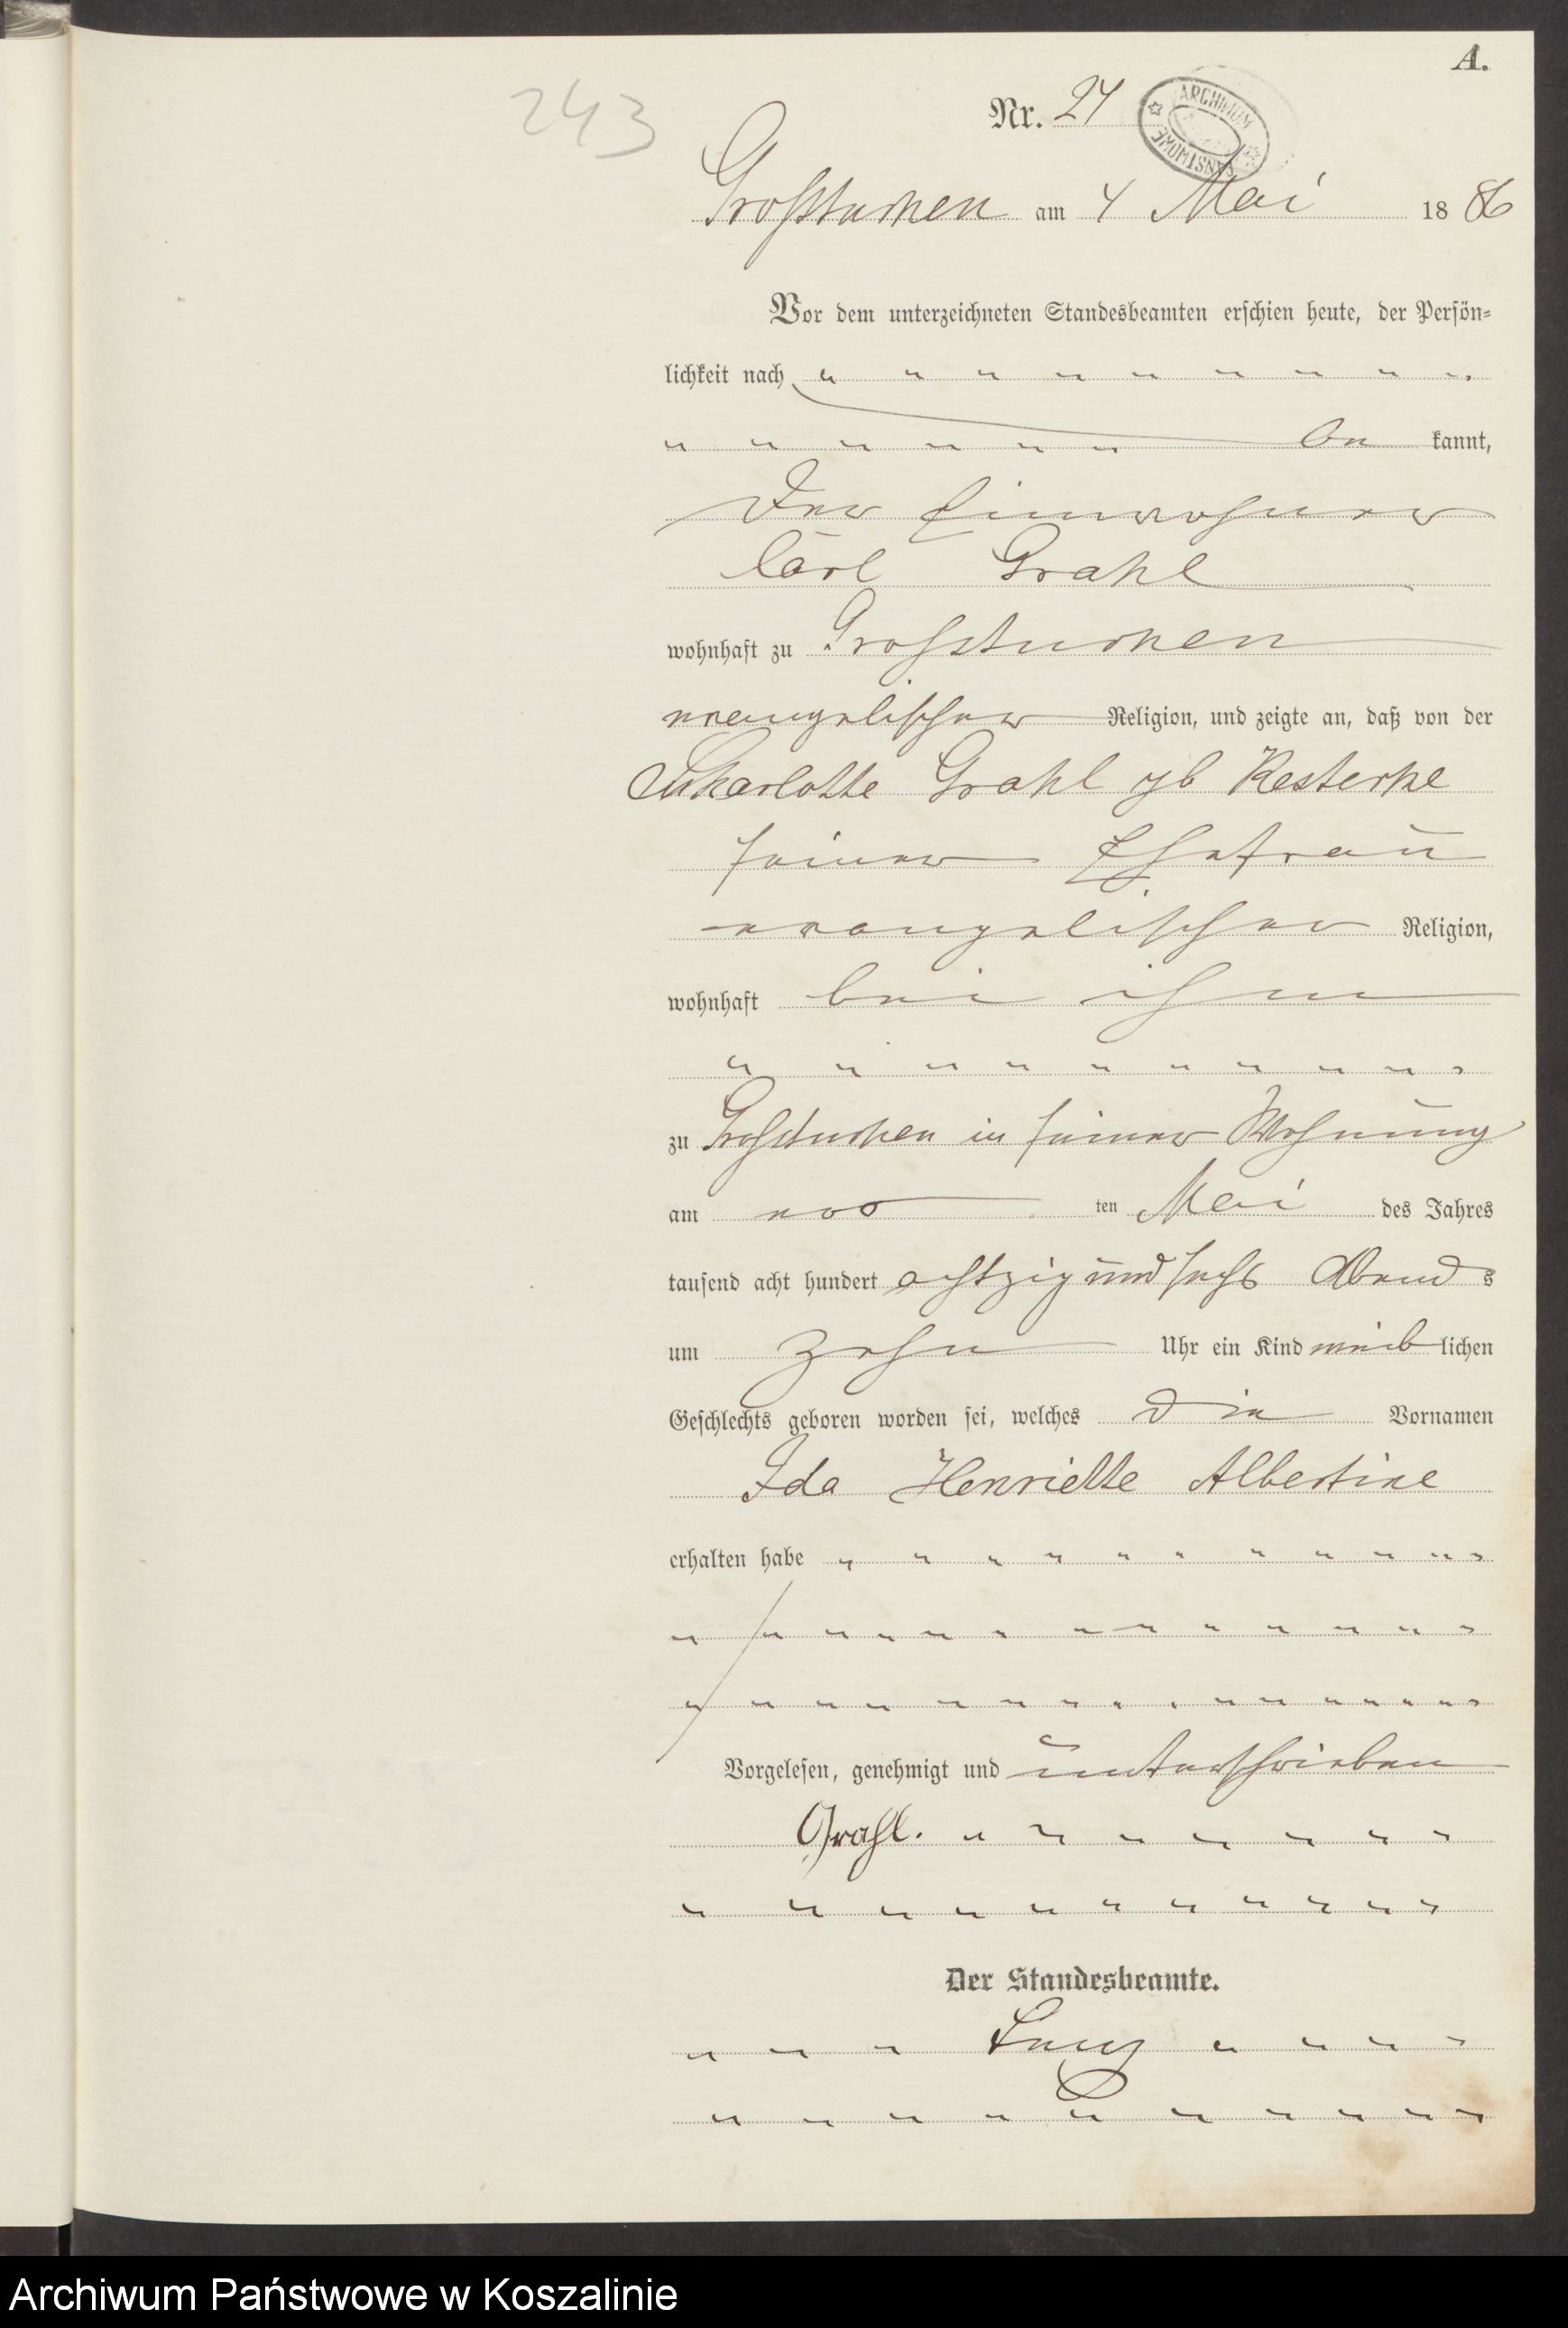 A.
243
Nr. 24
ARCHIWUM
PAŃSTWOWE
Großtuchen am 4 Mai 1886
Vor dem unterzeichneten Standesbeamten erschien heute, der Persön-
lichkeit nach
be kannt,
der Einwohner
Carl Grahl
wohnhaft zu Großtuchen
evangelischer Religion, und zeigte an, daß von der
Charlotte Grahl gb Resterke
seiner Ehefrau
evangelischer Religion,
wohnhaft bei ihm
zu Großtuchen in seiner Wohnung
am ten Mai des Jahres
tausend acht hundert achtzig und sechs Abends
um zehn Uhr ein Kind weiblichen
Geschlechts geboren worden sei, welches die Vornamen
Ida Henriette Albertine
erhalten habe
Vorgelesen, genehmigt und unterschrieben
Grahl.
Der Standesbeamte.
Archiwum Państwowe w Koszalinie